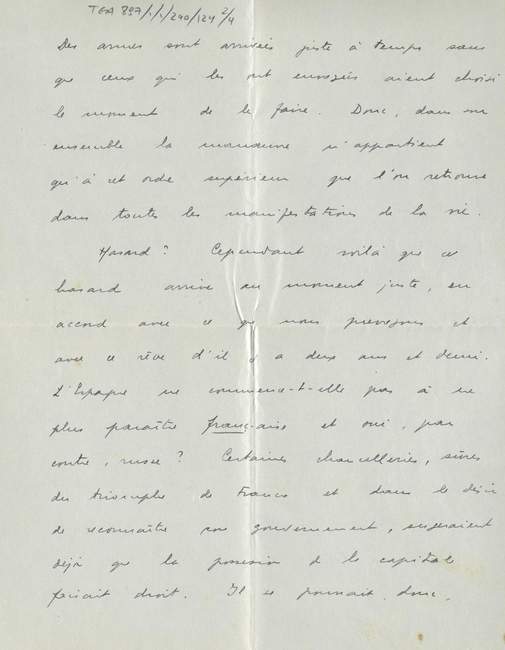 TGA 897/1/1/240/124 2/4
Des armes sont arrivées juste à temps sans
que ceux qui les ont envoyées aient choisi
le moment de le faire. Donc, dans son
ensemble la manœuvre n'appartient
qu'à cet ordre supérieur que l'on retrouve
dans toutes les manifestations de la vie.
Hasard? Cependant voilà que ce
hasard arrive au moment juste, en
accord avec ce que nous prévoyons et
avec ce rêve d'il y a deux ans et demi.
L'Espagne ne commence-t-elle pas à ne
plus paraître française et oui, par
contre, russe? Certaines chancelleries, sûres
du triomphe de Franco et dans le désir
de reconnaître son gouvernement, suggéraient
déjà que la possession de la capitale
faisait droit. Il se pourrait donc,